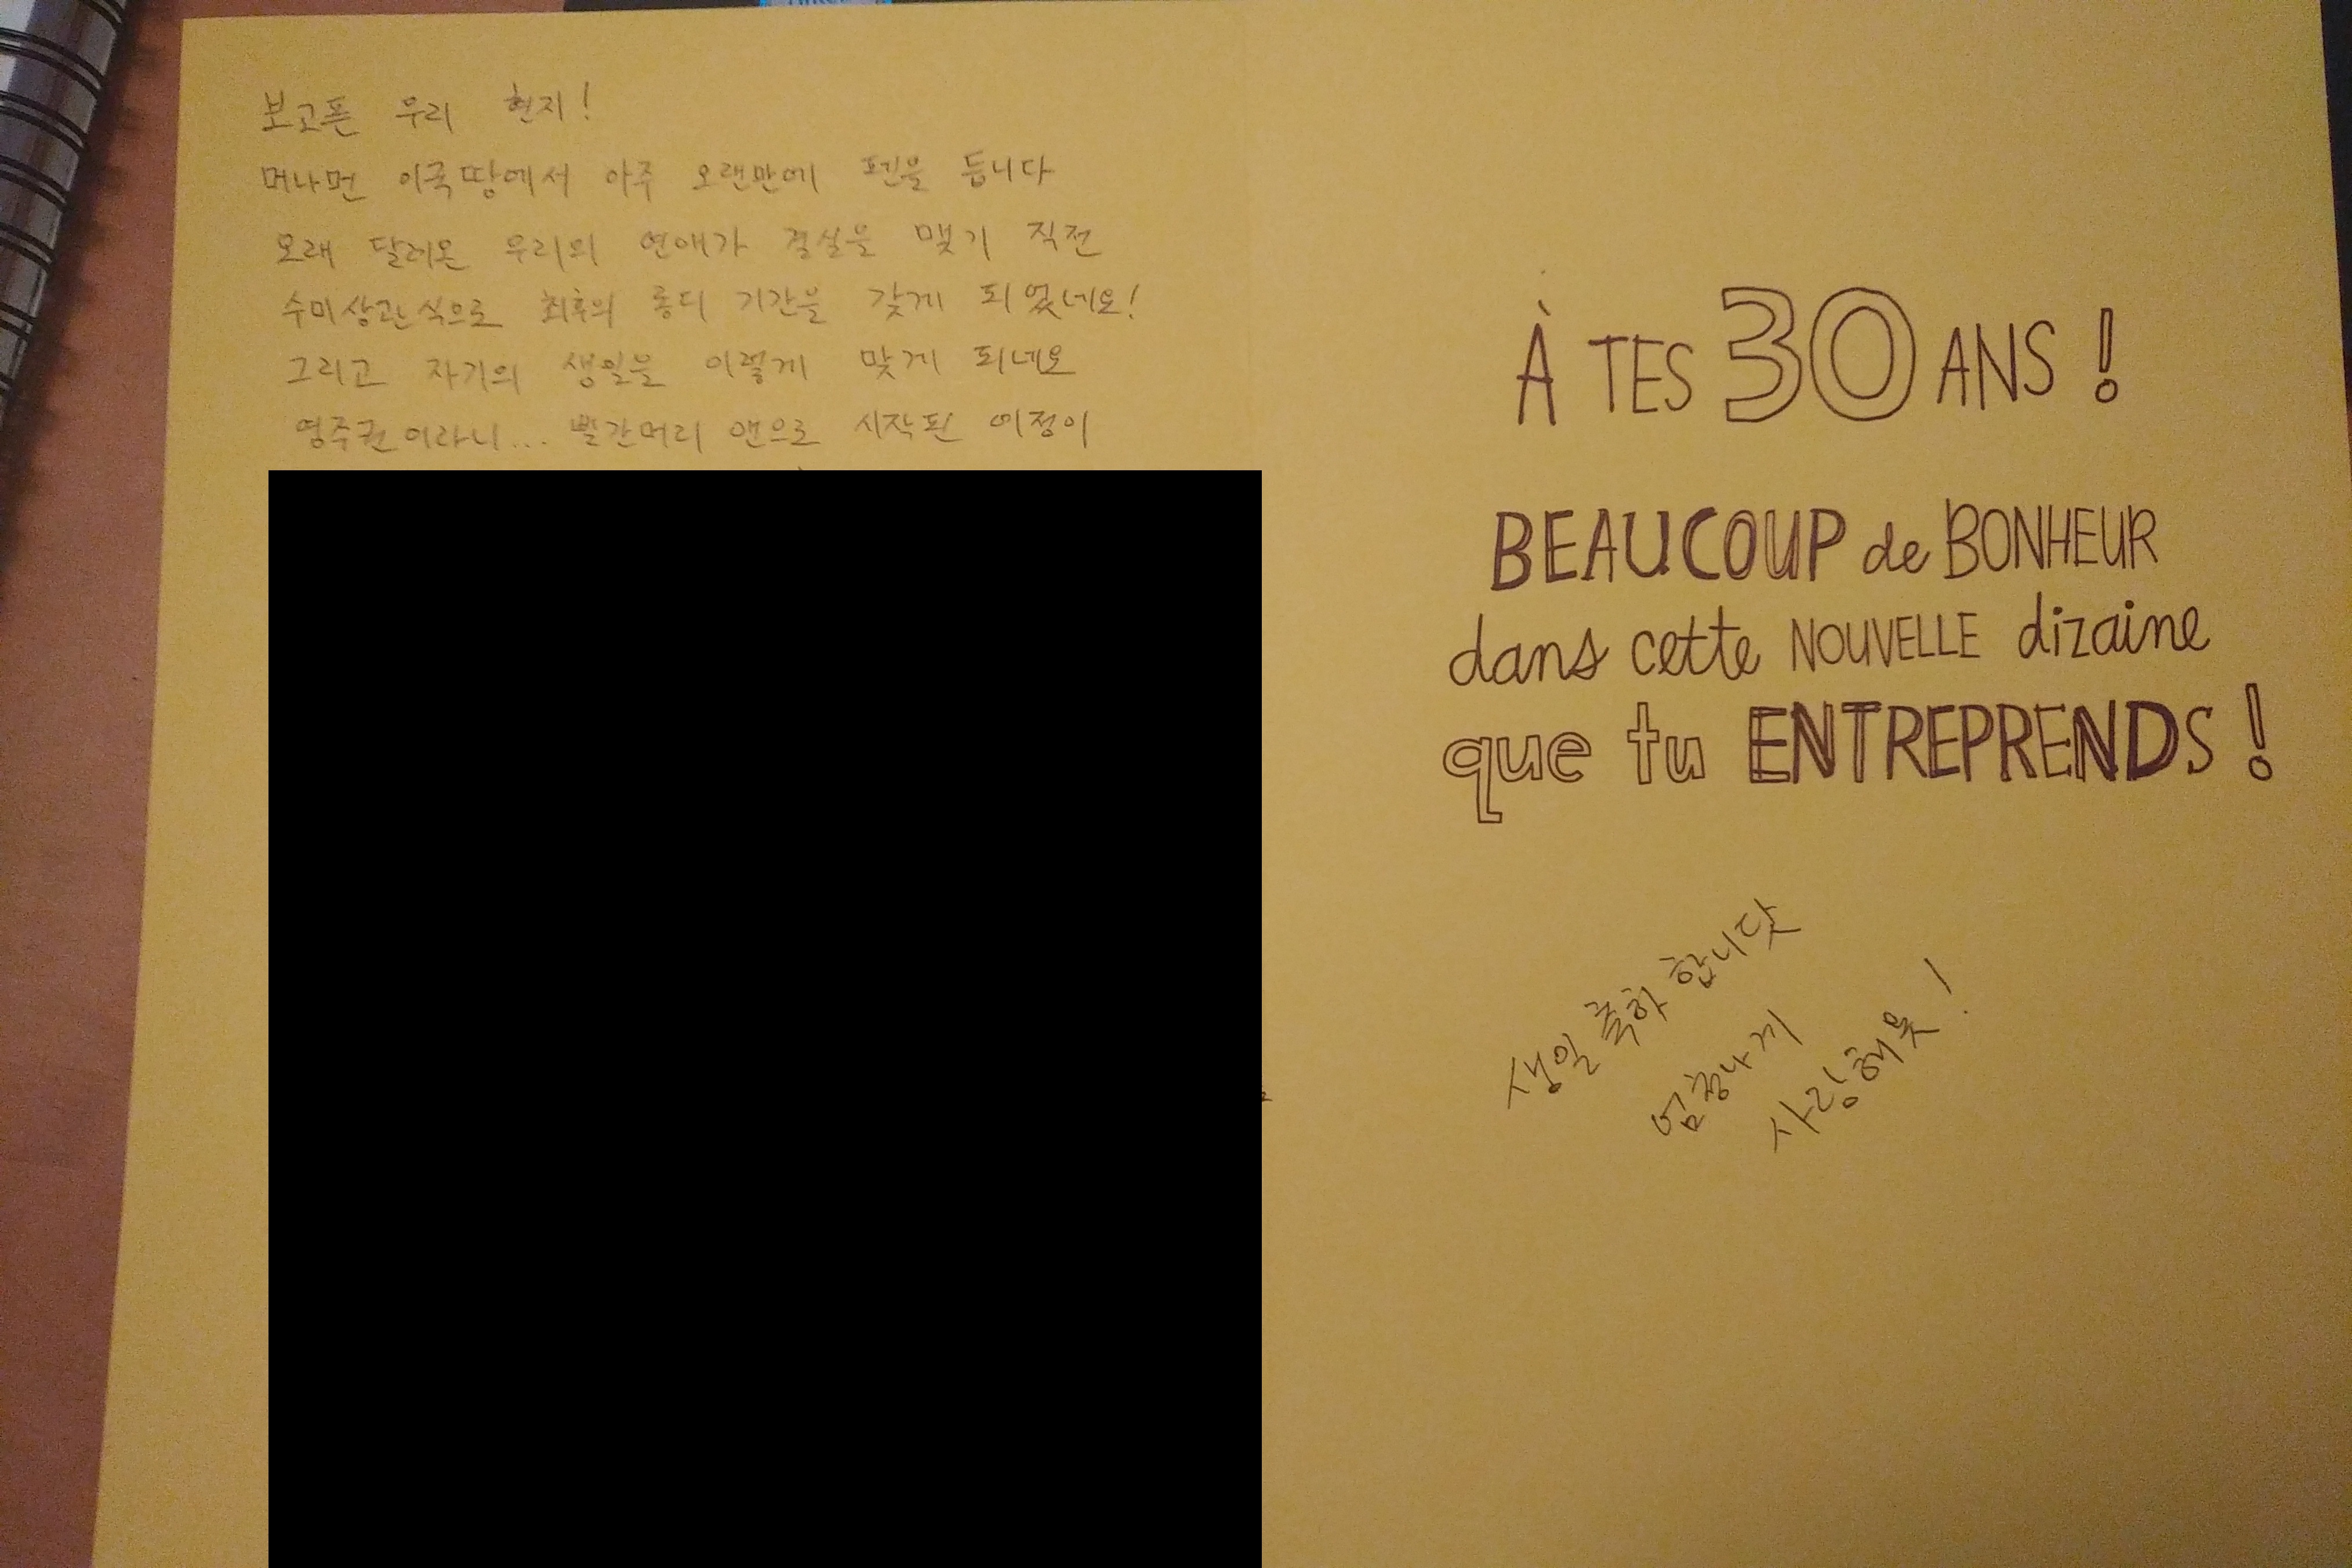 보고픈 우리 현지!
머나먼 이국땅에서 아주 오랜만에 펜을 듭니다
오래 달려온 우리의 연애가 결실을 맺기 직전
수미상관식으로 최후의 롱디 기간을 갖게 되었네요!
그리고 자기의 생일을 이렇게 맞게 되네요
영주권이라니... 빨간머리 앤으로 시작된 여정이
À TES 30 ANS !
BEAUCOUP de BONHEUR
dans cette NOUVELLE dizaine
que tu ENTREPRENDS !
생일 축하 합니닷
엄청나게
사랑해욧!